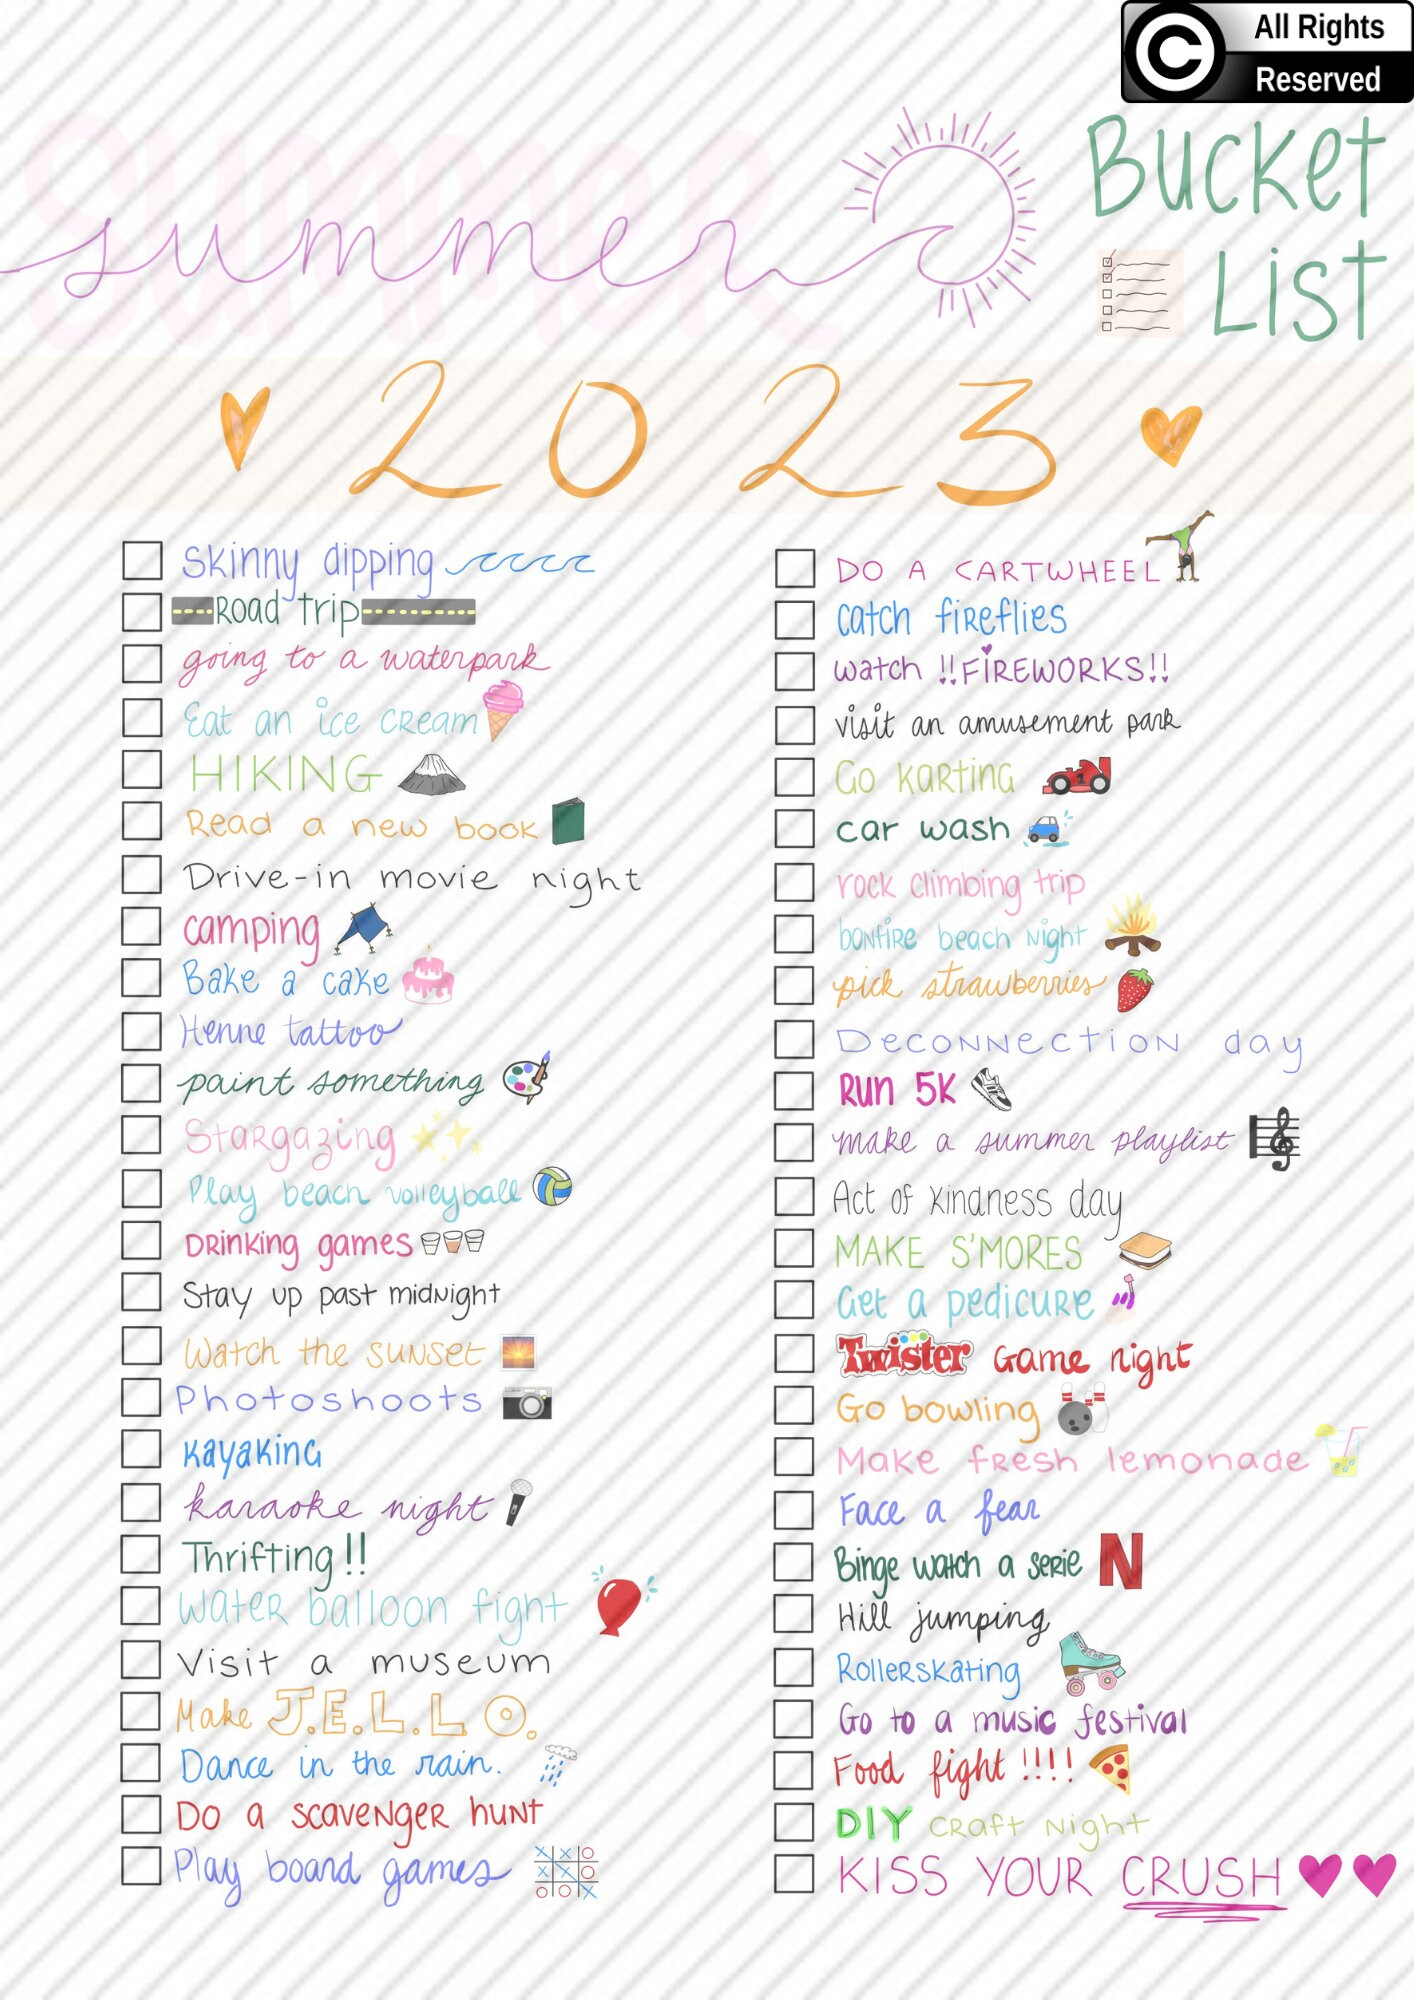 All Rights
Reserved
summer
summer
Bucket
List
2023
Skinny dipping
Road trip
going to a waterpark
Eat an ice cream
HIKING
Read a new book
Drive-in movie night
camping
Bake a cake
Henne tattoo
paint something
Stargazing
Play beach volleyball
Drinking games
Stay up past midnight
Watch the sunset
Photoshoots
kayaking
karaoke night
Thrifting!!
Water balloon fight
Visit a museum
Make J.E.L.L.O.
Dance in the rain.
Do a scavenger hunt
Play board games
DO A CARTWHEEL
catch fireflies
watch !!FIREWORKS!!
visit an amusement park
Go karting
car wash
rock climbing trip
bonfire beach night
pick strawberries
Deconnection day
Run 5K
make a summer playlist
Act of kindness day
MAKE S'MORES
Get a pedicure
Twister Game night
Go bowling
Make fresh lemonade
Face a fear
Binge watch a serie N
Hill jumping
Rollerskating
Go to a music festival
Food fight !!!!
DIY craft night
KISS YOUR CRUSH